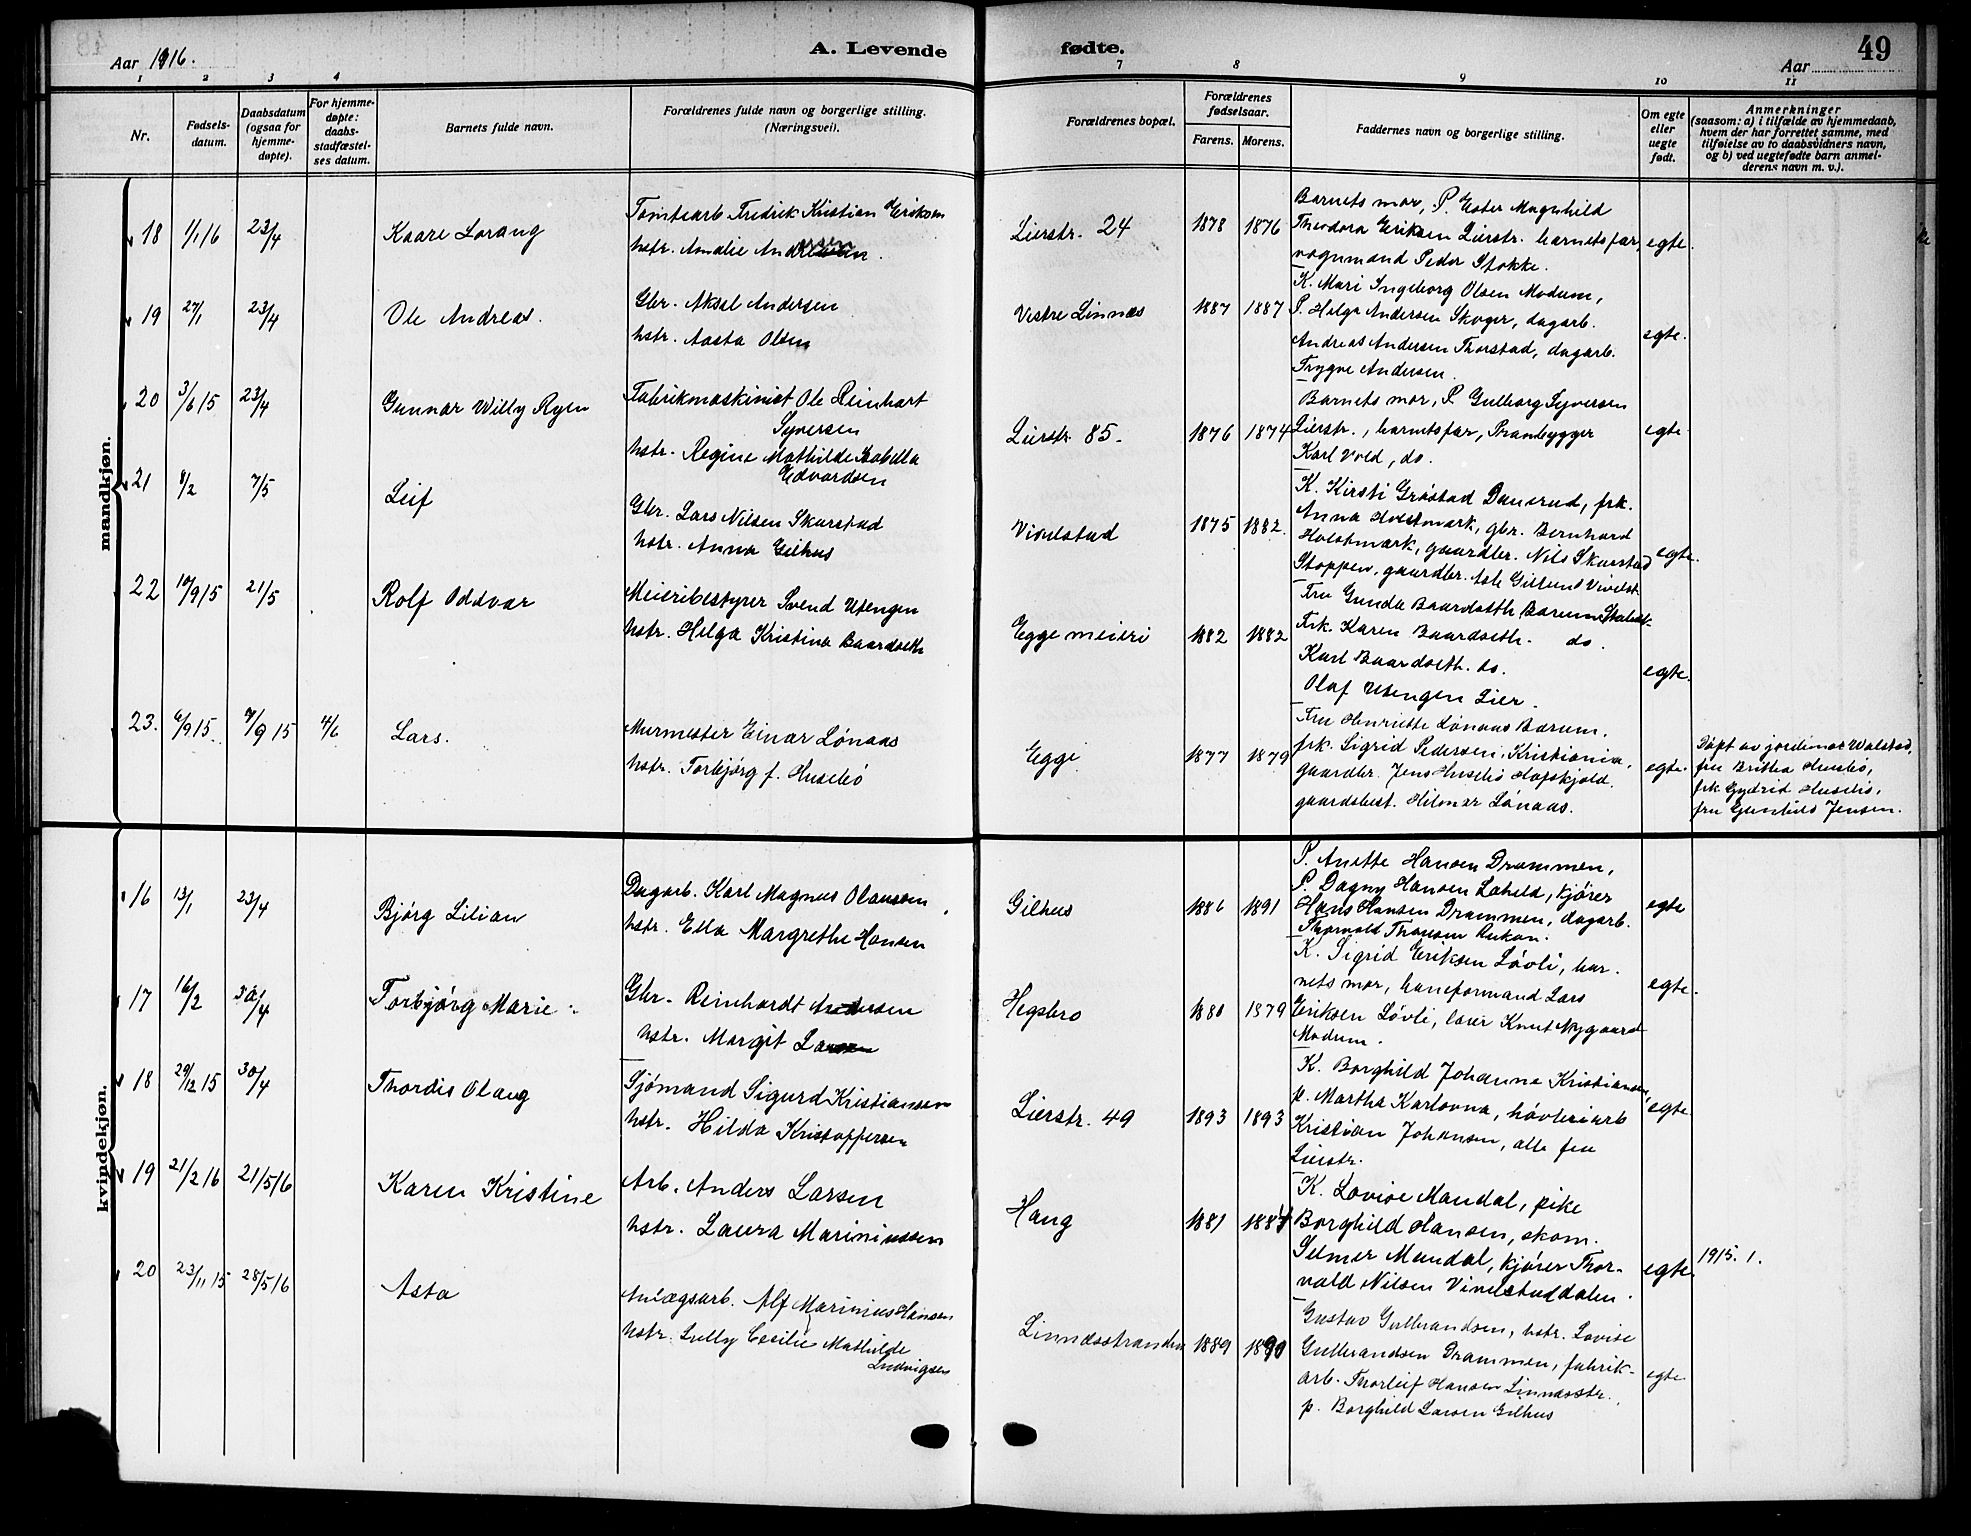 Aar 1916.
A. Levende
fødte.
49
Aar
1
2
3
4
7
8
9
10
11
Nr.
Fødsels-
datum.
Daabsdatum
(ogsaa for
hjemme-
døpte).
For hjemme-
døpte:
daabs-
stadfæstel-
ses datum.
Barnets fulde navn.
Forældrenes fulde navn og borgerlige stilling.
(Næringsvei).
Forældrenes bopæl.
Forældrenes
fødselsaar.
Farens.
Morens.
Faddernes navn og borgerlige stilling.
Om egte
eller
uegte
født.
Anmerkninger
(saasom: a) i tilfælde av hjemmedaab,
hvem der har forrettet samme, med
tilføielse av to daabsvidners navn,
og b) ved uegtefødte barn anmel-
derens navn m. v.).
mandkjøn.
18
1/1 16
23/4
Kaare Lorang
Tomtearb. Fredrik Kristian Eriksen
hstr. Amalie Andresen.
Lierstr. 24
1878
1876
Barnets mor, P. Ester Magnhild
Theodora Eriksen Lierstr. barnets far,
vognmand Peder Stokke.
egte.
19
27/1
23/4
Ole Andreas.
Gbr. Aksel Andersen
hstr. Aasta Olsen
Vestre Linnes
1887
1887
K. Mari Ingeborg Olsen Modum,
P. Helga Andersen Skoger, dagarb.
Andreas Andersen Thorstad, dagarb.
Trygve Andersen.
egte.
20
3/6 15
23/4
Gunnar Willy Ryen
Fabrikmaskinist Ole Reinhart
Syversen
hstr. Regine Mathilde Isabella
Edvardsen
Lierstr. 85.
1876
1874
Barnets mor, P. Gulborg Syversen
Lierstr., barnets far, Prambygger
Karl Vold, do.
egte.
21
8/2
7/5
Leif
Gbr. Lars Nilsen Skurstad
hstr. Anna Gilhus
Vivelstad
1875
1882.
K. Kirsti Grøstad Damrud, frk.
Anna Holstmark, gbr. Bernhard
Holstmark, gaardbr. Nils Skurstad
Stoppen, gaardbr. Vivelst.
egte.
22
10/9 15
21/5
Rolf Oddvar
Meieribestyrer Svend Utengen
hstr. Helga Kristina Baardseth
Egge meieri
1882
1882
Fru Gunda Baardseth Bærum
Frk. Karen Baardseth. do.
Karl Baardseth. do.
Olaf Utengen Lier.
egte.
23.
6/9 15
7/9 15
4/6
Lars.
Murmester Einar Lønaas
hstr. Torbjørg f. Husebø
Egge
1877
1879
Fru Henriette Lønaas Bærum.
frk. Sigrid Pedersen, Kristiania,
gaardbr. Jens Husebø Hafskjold.
gaardsbest. Hilmar Lønaas.
egte.
Døpt av jordmor Walstad,
fru Britha Husebø,
frk. Gydrid Husebø,
fru Gunhild Jensen.
kvindekjøn.
16
13/1
23/4
Bjørg Lilian
Dagarb. Karl Magnus Olaussen,
hstr. Ella Margrethe Hansen
Gilhus
1886
1891
P. Anette Hansen Drammen,
P. Dagny Hansen Laheld, kjører
Hans Hansen Drammen, dagarb.
Thorvald Thoresen Rukan.
egte
17
16/2
30/4
Torbjørg Marie
Gbr. Reinhardt Andersen
hstr. Margit Larsen
Hegsbro
1880
1879
K. Sigrid Eriksen Løvli, bar-
nets mor, baneformand Lars
Eriksen Løvli, lærer Knut Nygaard
Modum.
egte.
18
29/12 15
30/4
Thordis Olaug
Sjømand Sigurd Kristiansen
hstr. Hilda Kristoffersen
Lierstr. 49
1893
1893
K. Borghild Johanne Kristiansen,
p. Martha Karlovna, høvleriarb
Kristian Johansen, alle fra
Lierstr.
egte
19
21/2 16
21/5 16
Karen Kristine
Arb. Anders Larsen
hstr. Laura Mariniussen
Haug
1881
1884
K. Lovise Mandal, pike
Borghild Hansen, skom.
Selmer Mandal, kjører Thor-
vald Nilsen Vivelstaddalen.
egte.
1915. 1.
20
23/11 15
28/5 16
Asta
Anlægsarb. Alf Marinius Hansen
hstr. Lully Cecilie Mathilde
Ludvigsen
Linnesstranden
1889
1890
Gustav Gulbrandsen, hstr. Lovise
Gulbrandsen Drammen, fabrik-
arb. Thorleif Hansen Linnesstr.,
p. Borghild Larsen Gilhus
egte